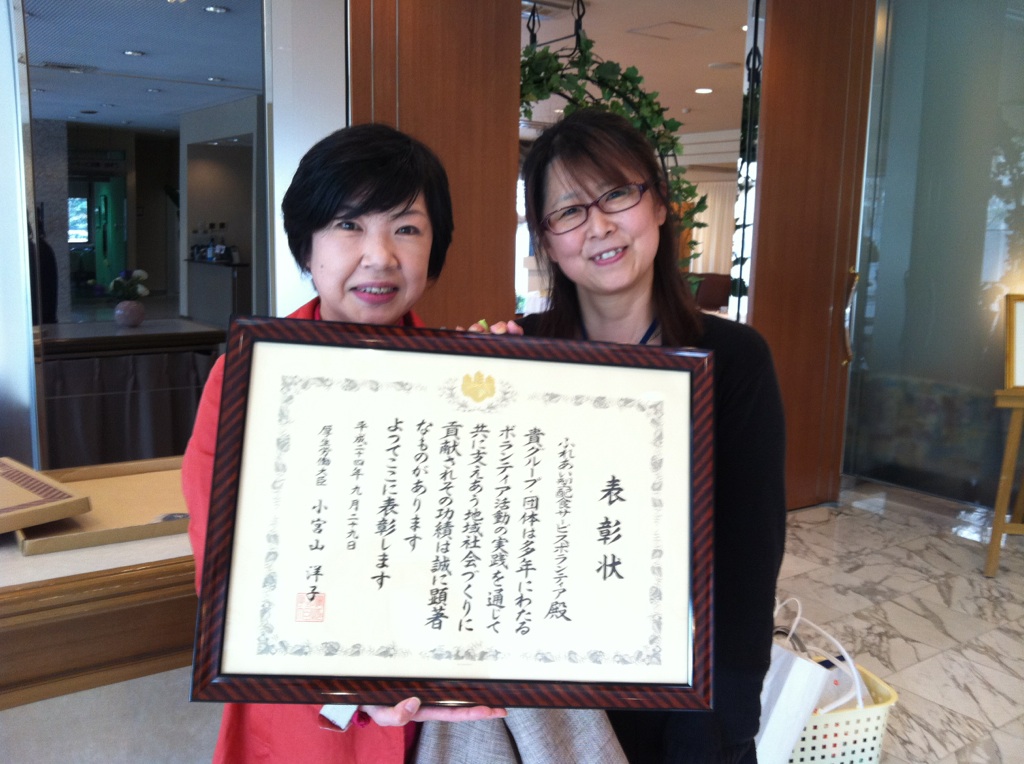 表彰状
ふれあい型配食サービスボランティア殿
貴グループ・団体は多年にわたる
ボランティア活動の実践を通じて
共に支えあう地域社会づくりに
貢献されその功績は誠に顕著
なものがあります
よつてここに表彰します
平成二十四年九月二十九日
厚生労働大臣 小宮山洋子